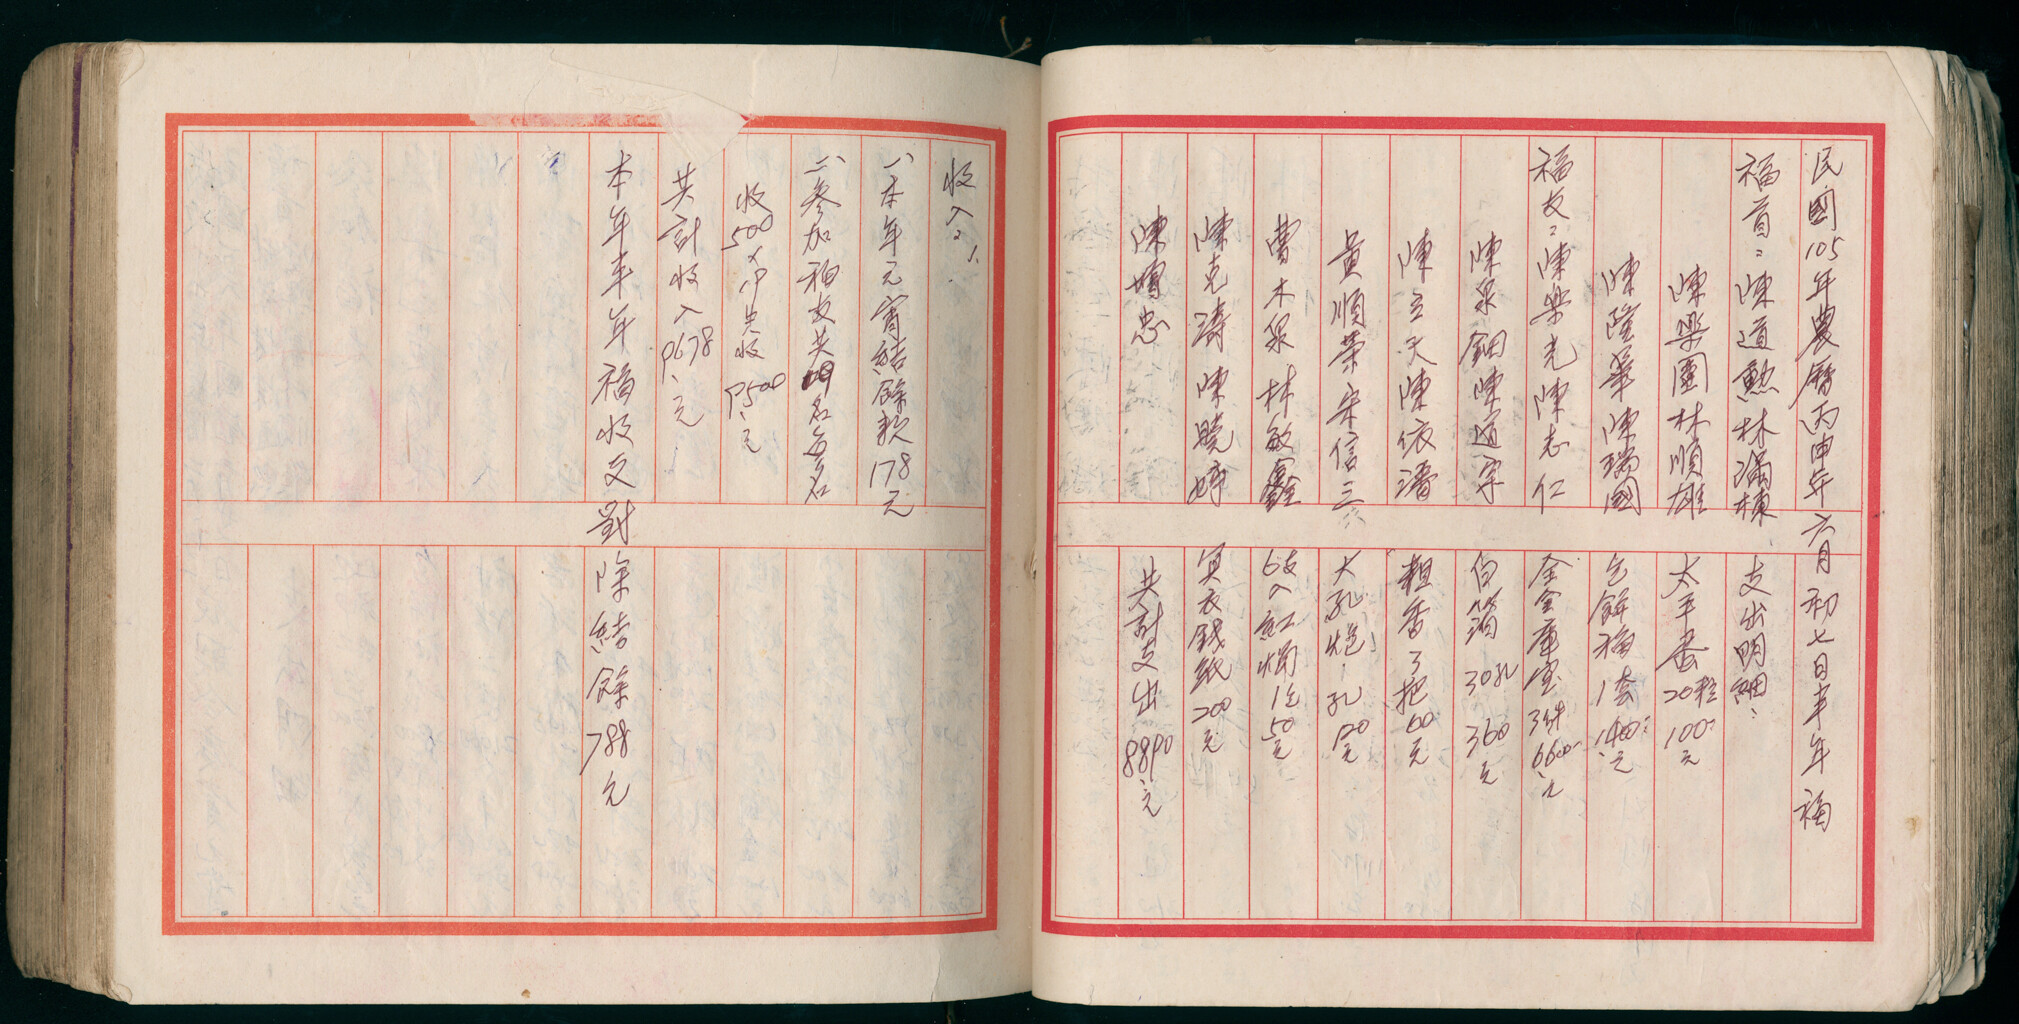 民國105年農曆丙申年六月初七日半年福
福首：陳道勲 林滿棟
陳樂團 林順雄
陳隆華 陳瑞國
福友：陳樂光 陳志仁
陳泉鈿 陳道宗
陳立天 陳依潘
黃順榮 宋信三
曹木泉 林敏鑫
陳克濤 陳曉婷
陳博忠
支出明細：
太平燭20粒100元
包餅福1套1400元
全金庫宝3件6600元
白箔30孔360元
粗香3把60元
大孔炮1孔120元
6支入紅燭1包50元
冥衣錢紙200元
共計支出8890元
收入：
一、本年元宵結餘款178元
二、參加福友共19名每名
收500×19共收9500元
共計收入9678元
本年半年福收支對除結餘788元